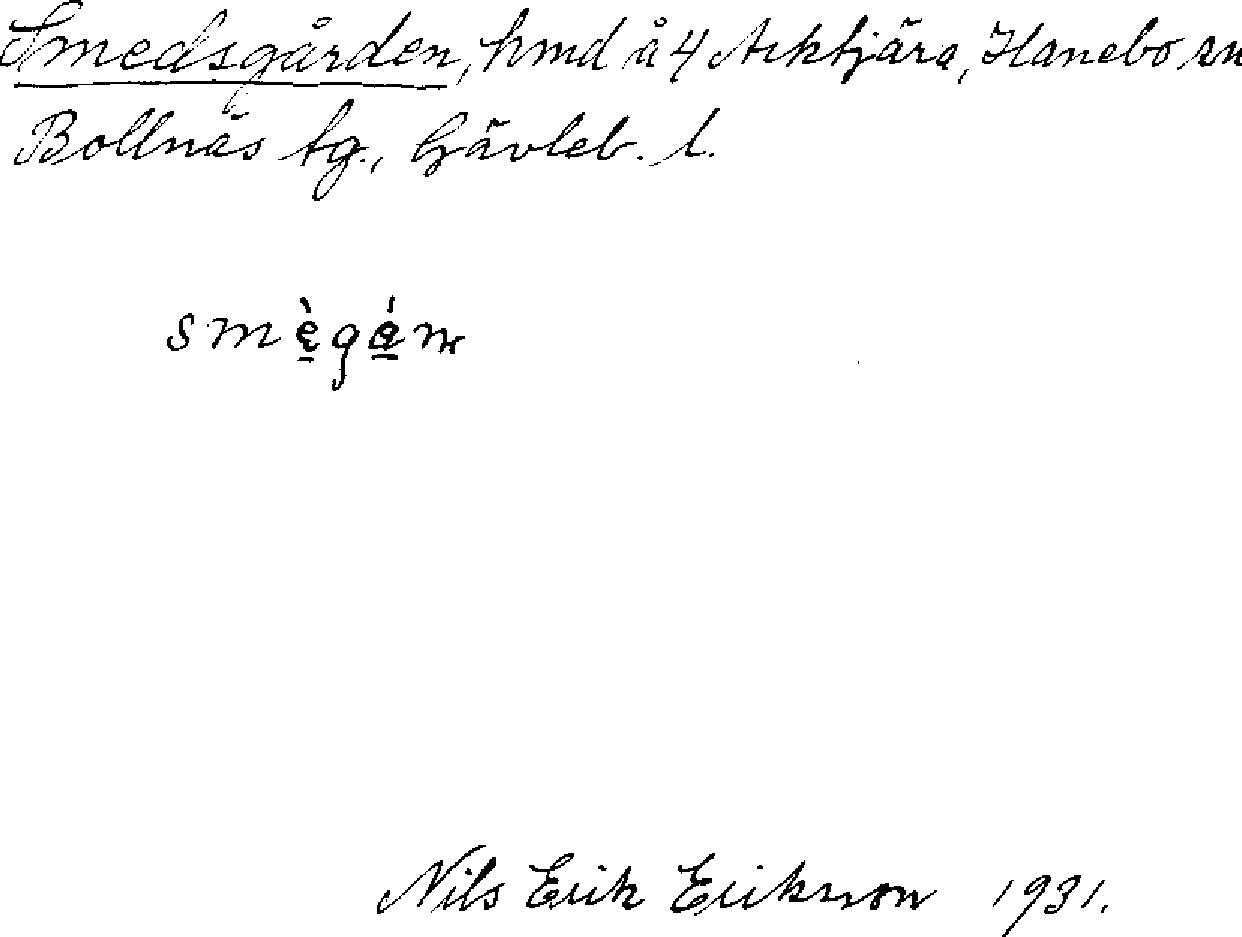 Smedsgården, hmd å 4 Arktjära, Hanebo sn
Bollnäs tg., Gävleb. l.
smègán
Nils Erik Erikson 1931.